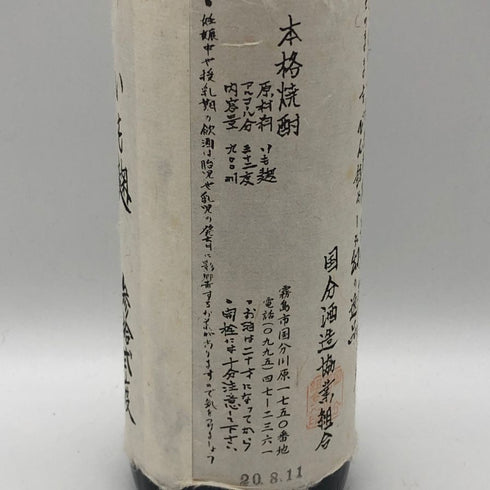 本格焼酎
国分酒造協業組合
原材料 いも麹
アルコール分 三十二度
内容量 九〇〇ml
霧島市国分川原一七五〇番地
電話(〇九九五)四七ー二三六一
・お酒は二十才になってから
・開栓には十分注意して下さい
・妊娠中や授乳期の飲酒は胎児や乳児の発育に影響するおそれがありますので気をつけましょう
いも麹 参拾弐度
20.8.11